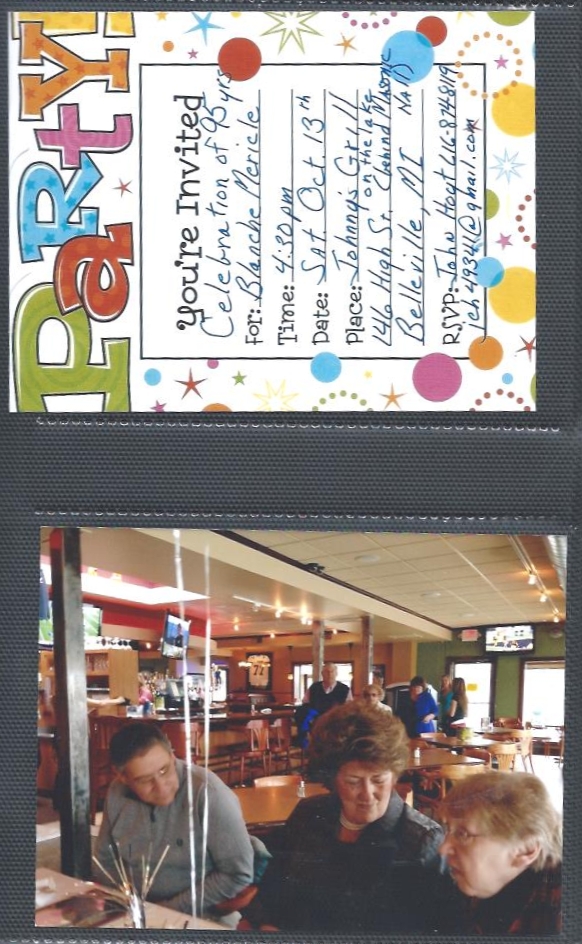 PaRtY!
You're Invited
Celebration of 95 yrs
For: Blanche Mericle
Time: 4:30 pm
Date: Sat Oct. 13th
Place: Johnny's Grill
on the lake
146 High St. (behind Masonic
Belleville, MI
RSVP: John Hoyt 616-874-8119
jch49341@gmail.com
77